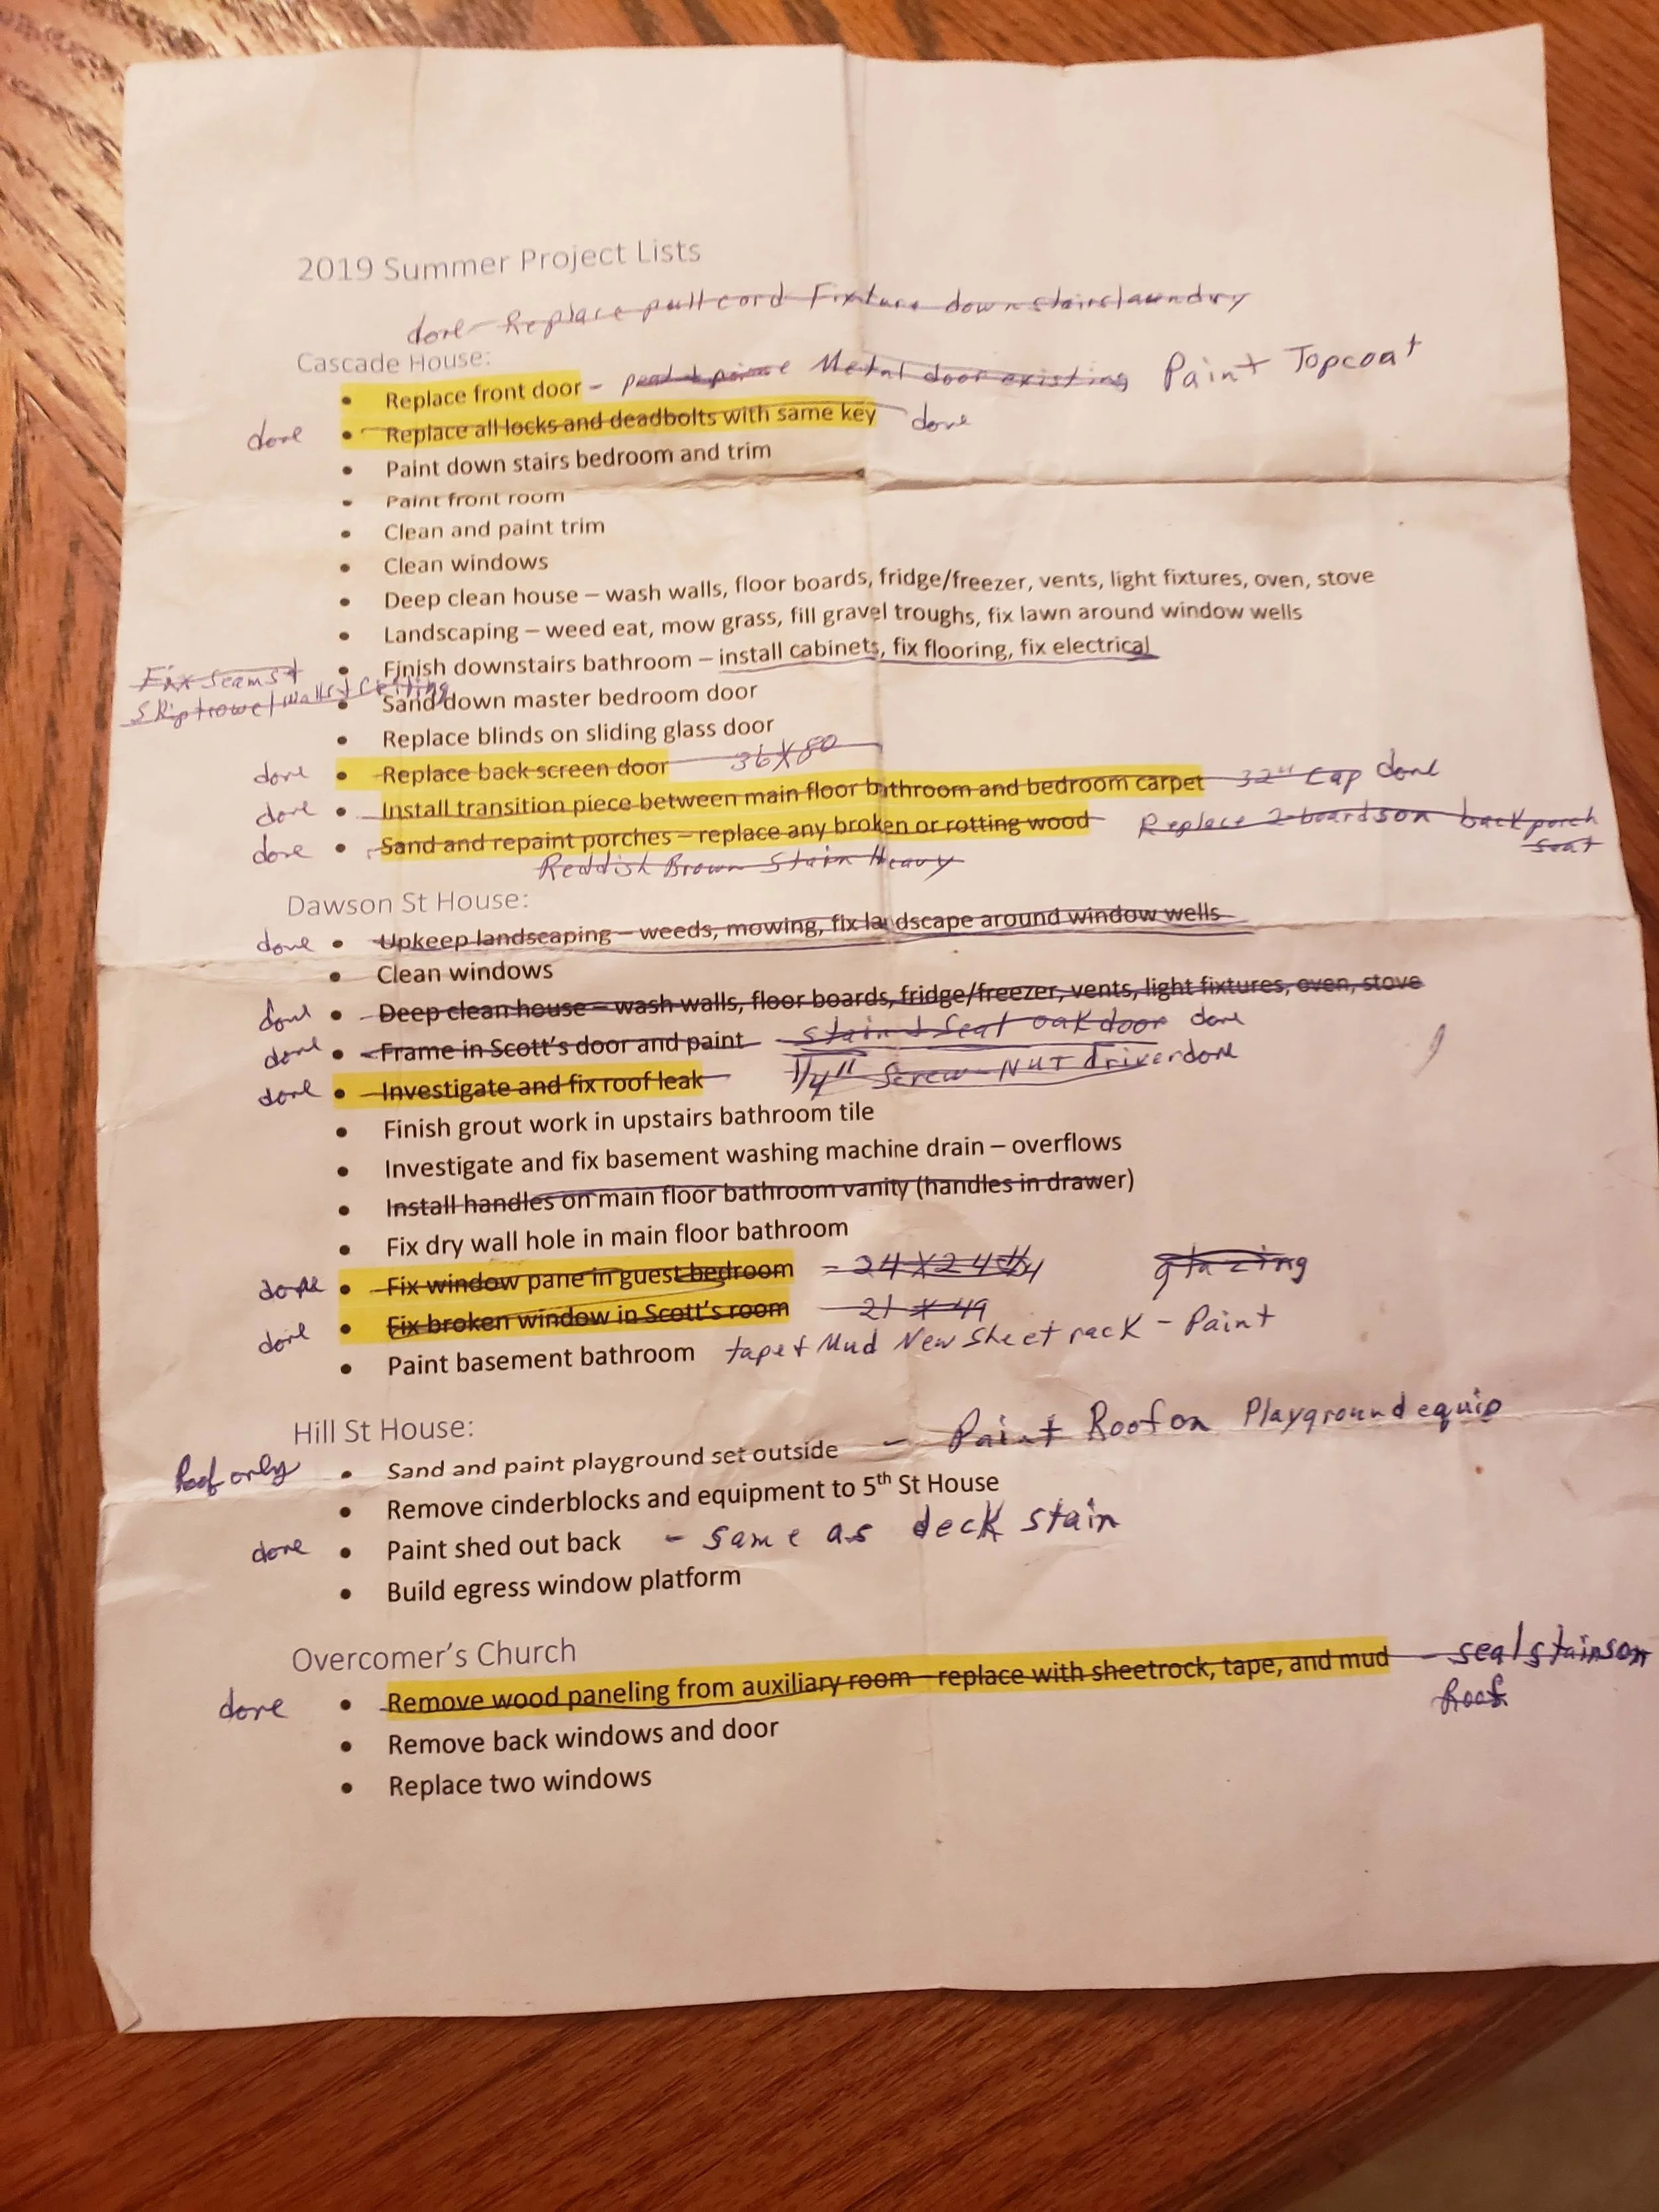 2019 Summer Project Lists
done - Replace pull cord Fixture downstairs laundry
Cascade House:
• Replace front door - prime Metal door existing Paint Topcoat
done • Replace all locks and deadbolts with same key done
• Paint down stairs bedroom and trim
• Paint front room
• Clean and paint trim
• Clean windows
• Deep clean house – wash walls, floor boards, fridge/freezer, vents, light fixtures, oven, stove
• Landscaping – weed eat, mow grass, fill gravel troughs, fix lawn around window wells
Fix seams + • Finish downstairs bathroom – install cabinets, fix flooring, fix electrical
Skiptrowel walls + Ceiling • Sand down master bedroom door
• Replace blinds on sliding glass door
done • Replace back screen door 36X80
done • Install transition piece between main floor bathroom and bedroom carpet 32" Cap done
done • Sand and repaint porches – replace any broken or rotting wood Replace 2 boards on back porch
seat
Reddish Brown Stain Heavy
Dawson St House:
done • Upkeep landscaping – weeds, mowing, fix landscape around window wells
• Clean windows
done • Deep clean house – wash walls, floor boards, fridge/freezer, vents, light fixtures, oven, stove
done • Frame in Scott's door and paint stain + Seal oak door done
done • Investigate and fix roof leak 1/4" Screw - NUT driver done
• Finish grout work in upstairs bathroom tile
• Investigate and fix basement washing machine drain – overflows
• Install handles on main floor bathroom vanity (handles in drawer)
• Fix dry wall hole in main floor bathroom
done • Fix window pane in guest bedroom = 24 X 24 glazing
done • Fix broken window in Scott's room 21 X 49
• Paint basement bathroom tape + Mud New Sheet rack - Paint
Hill St House:
Roof only • Sand and paint playground set outside - Paint Roof on Playground equip
• Remove cinderblocks and equipment to 5th St House
done • Paint shed out back - same as deck stain
• Build egress window platform
Overcomer's Church
done • Remove wood paneling from auxiliary room – replace with sheetrock, tape, and mud - seal stains on
Roof
• Remove back windows and door
• Replace two windows